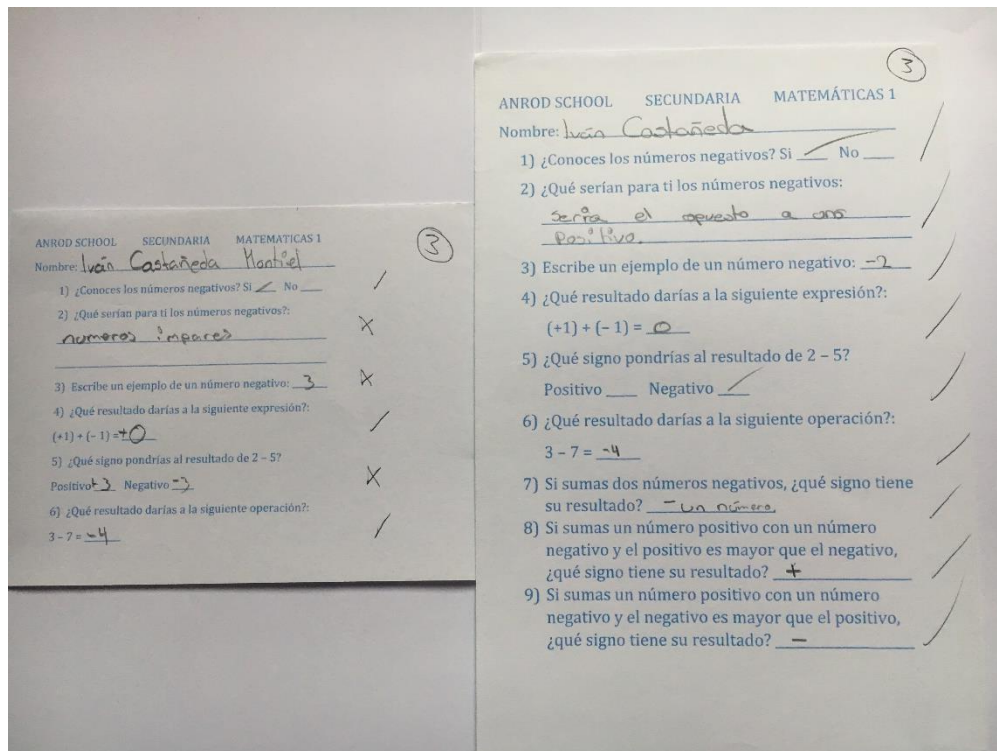 ANROD SCHOOL SECUNDARIA MATEMATICAS 1
3
Nombre: Iván Castañeda Montiel
1) ¿Conoces los números negativos? Si ✓ No ___
/
2) ¿Qué serían para ti los números negativos?:
numeros impares
X
3) Escribe un ejemplo de un número negativo: 3
X
4) ¿Qué resultado darías a la siguiente expresión?:
(+1) + (- 1) = +0
/
5) ¿Qué signo pondrías al resultado de 2 – 5?
Positivo +3 Negativo -3
X
6) ¿Qué resultado darías a la siguiente operación?:
3 – 7 = -4
/
3
ANROD SCHOOL SECUNDARIA MATEMÁTICAS 1
Nombre: Iván Castañeda
1) ¿Conoces los números negativos? Si ✓ No ___
/
2) ¿Qué serían para ti los números negativos:
sería el opuesto a
positivo.
/
3) Escribe un ejemplo de un número negativo: -2
/
4) ¿Qué resultado darías a la siguiente expresión?:
(+1) + (– 1) = 0
/
5) ¿Qué signo pondrías al resultado de 2 – 5?
Positivo ___ Negativo ✓
/
6) ¿Qué resultado darías a la siguiente operación?:
3 – 7 = -4
/
7) Si sumas dos números negativos, ¿qué signo tiene
su resultado? - un número.
/
8) Si sumas un número positivo con un número
negativo y el positivo es mayor que el negativo,
¿qué signo tiene su resultado? +
/
9) Si sumas un número positivo con un número
negativo y el negativo es mayor que el positivo,
¿qué signo tiene su resultado? –
/